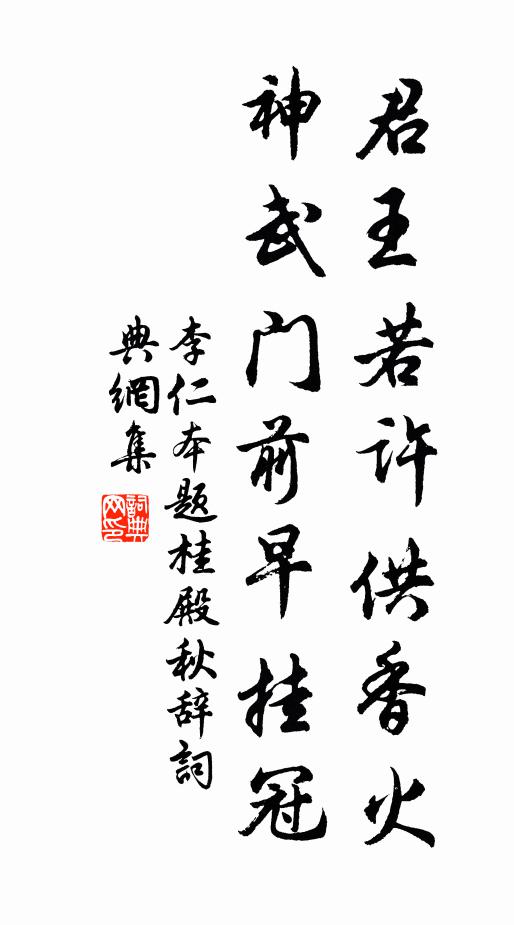 君王若许供香火
神武门前早挂冠
李仁本题桂殿秋辞詞
典網集
詞典
网印